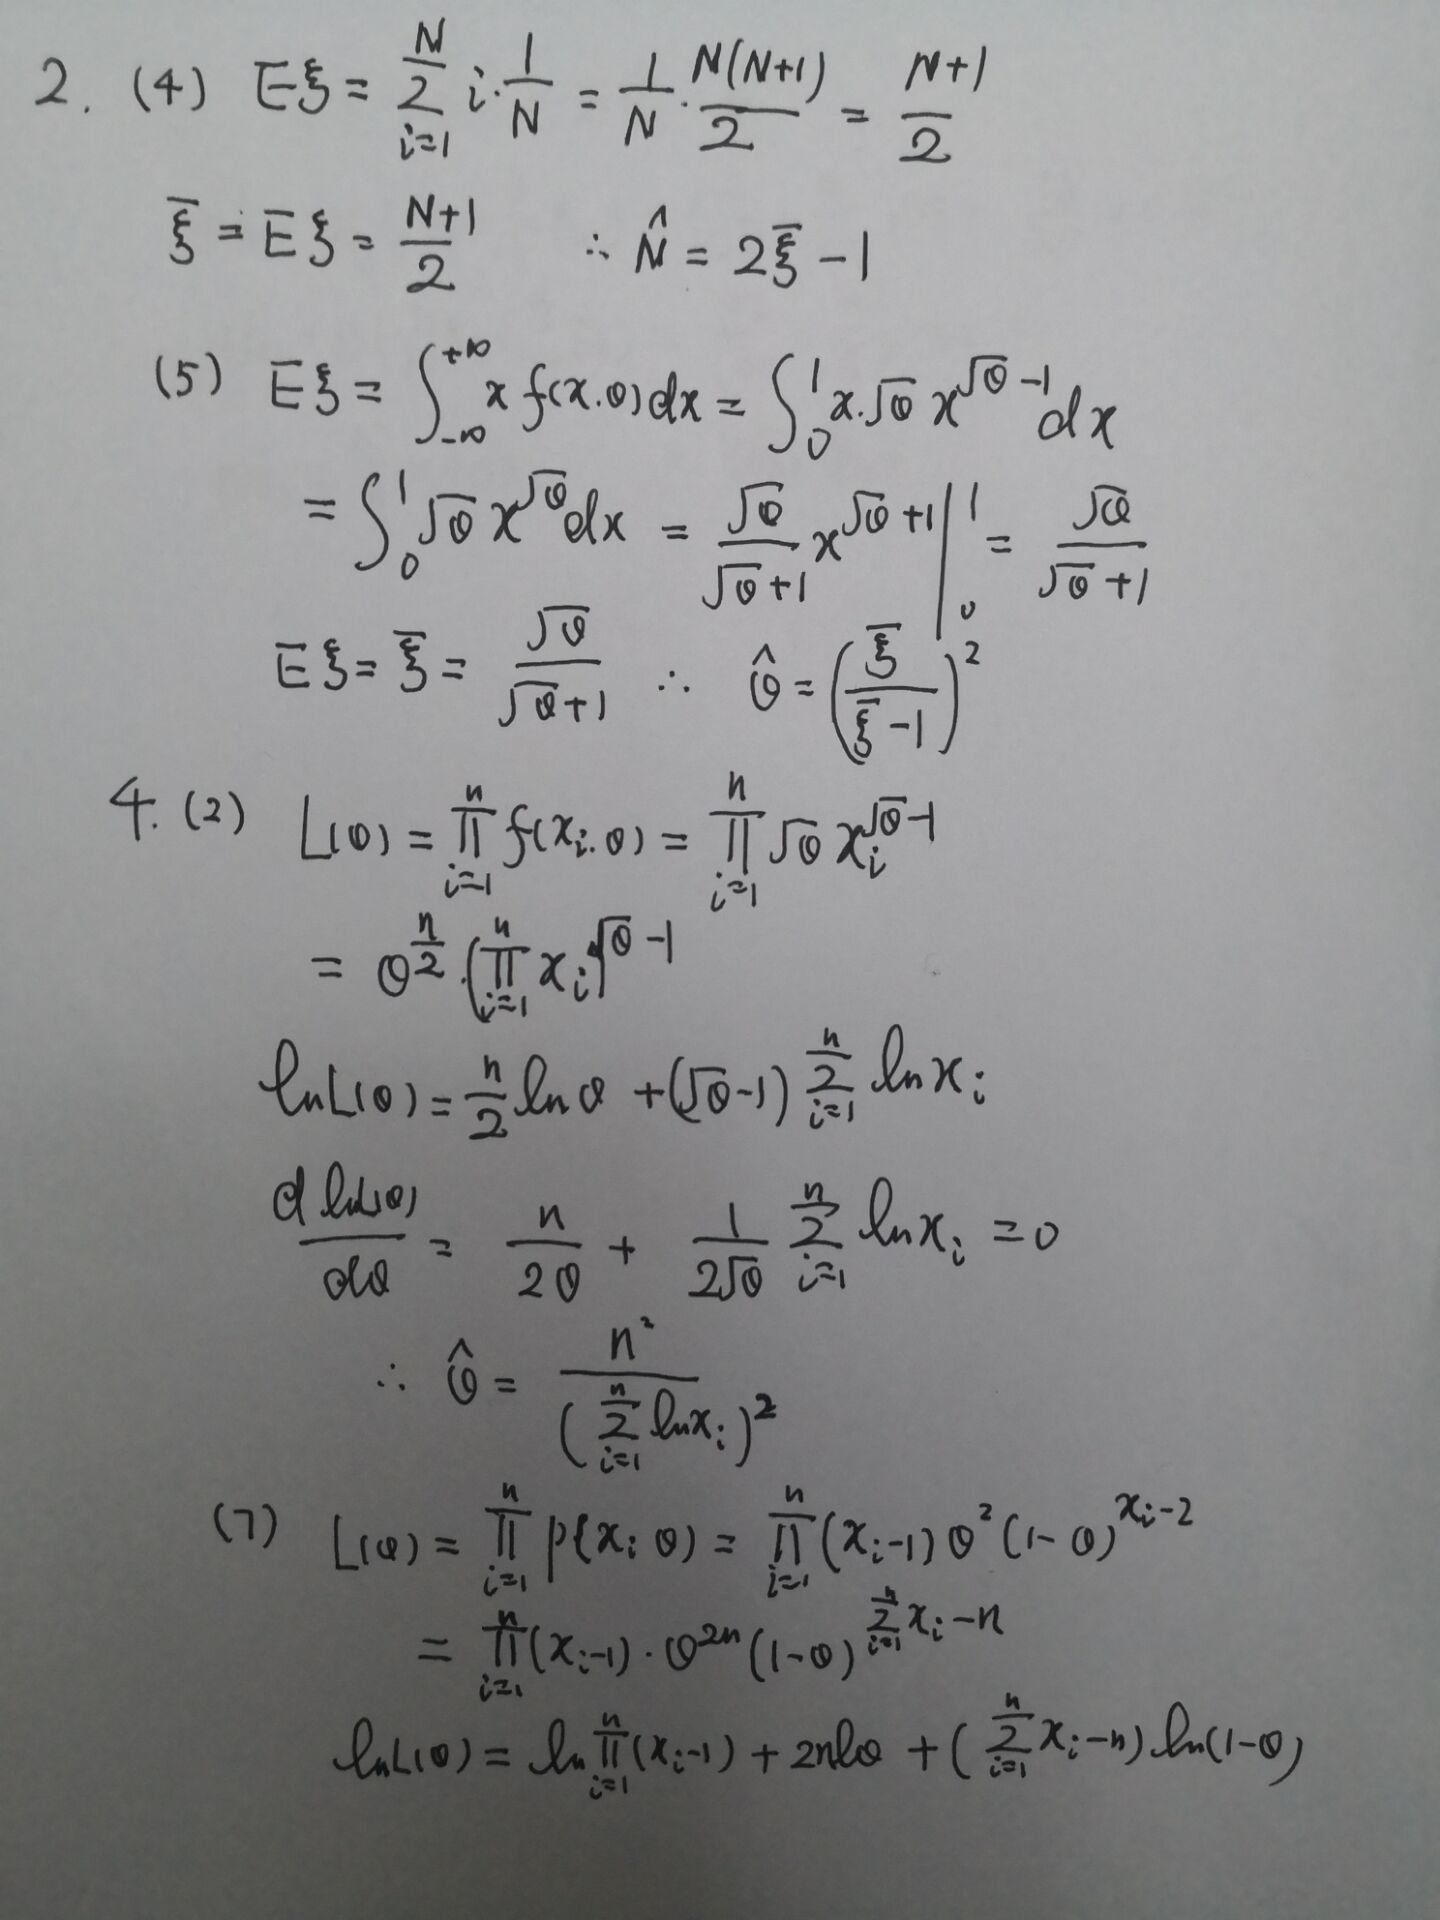 2. (4) Eξ = ∑_{i=1}^{N} i · 1/N = 1/N · N(N+1)/2 = (N+1)/2
ξ̄ = Eξ = (N+1)/2 ∴ N̂ = 2ξ̄ − 1
(5) Eξ = ∫_{-∞}^{+∞} x f(x.θ) dx = ∫_0^1 x.√θ x^{√θ −1} dx
= ∫_0^1 √θ x^{√θ} dx = √θ/(√θ+1) x^{√θ+1} |_0^1 = √θ/(√θ+1)
Eξ = ξ̄ = √θ/(√θ+1) ∴ θ̂ = (ξ̄/(ξ̄−1))^2
4. (2) L(θ) = ∏_{i=1}^{n} f(x_i.θ) = ∏_{i=1}^{n} √θ x_i^{√θ−1}
= θ^{n/2} · (∏_{i=1}^{n} x_i)^{√θ −1}
lnL(θ) = n/2 lnθ + (√θ−1) ∑_{i=1}^{n} ln x_i
d lnL(θ)/dθ = n/(2θ) + 1/(2√θ) ∑_{i=1}^{n} ln x_i = 0
∴ θ̂ = n²/(∑_{i=1}^{n} ln x_i)²
(7) L(θ) = ∏_{i=1}^{n} p(x_i θ) = ∏_{i=1}^{n} (x_i−1) θ² (1−θ)^{x_i−2}
= ∏_{i=1}^{n} (x_i−1) · θ^{2n} (1−θ)^{∑_{i=1}^{n} x_i−n}
lnL(θ) = ln ∏_{i=1}^{n} (x_i−1) + 2nlθ + (∑_{i=1}^{n} x_i−n) ln(1−θ)